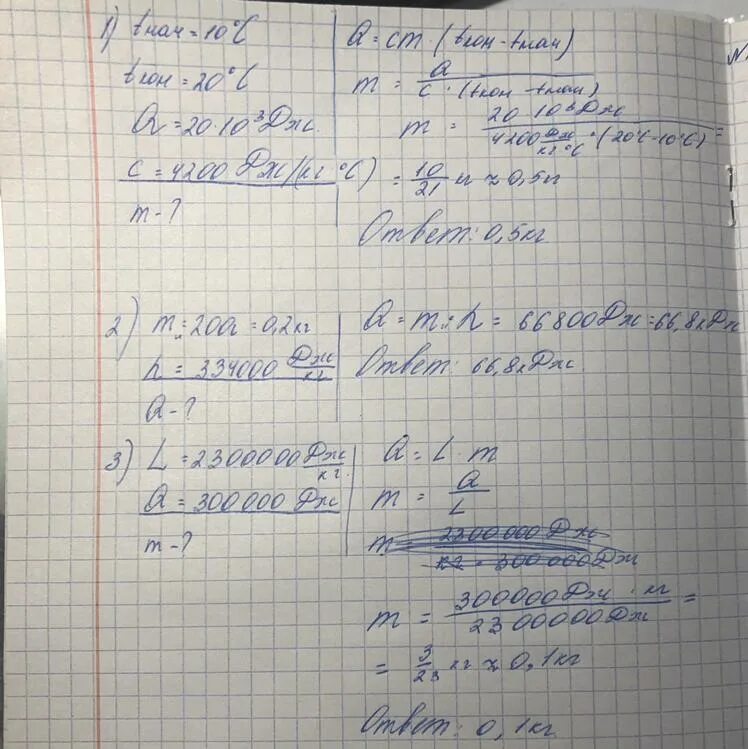 1) tнач = 10°C
tкон = 20°C
Q = 20·10³ Дж
c = 4200 Дж/(кг °C)
m - ?
Q = cm · (tкон - tнач)
m = Q / c · (tкон - tнач)
m = 20 · 10³ Дж / 4200 Дж/кг °C · (20°C - 10°C) =
= 10/21 кг ≈ 0,5 кг
Ответ: 0,5 кг
2) mл = 200г = 0,2 кг
λ = 334000 Дж/кг
Q - ?
Q = mл · λ = 66800 Дж = 66,8 кДж
Ответ: 66,8 кДж
3) L = 2300000 Дж/кг
Q = 300000 Дж
m - ?
Q = L · m
m = Q / L
m = 2300000 Дж / кг · 300000 Дж
m = 300000 Дж · кг / 2300000 Дж =
= 3/23 кг ≈ 0,1 кг
Ответ: 0,1 кг